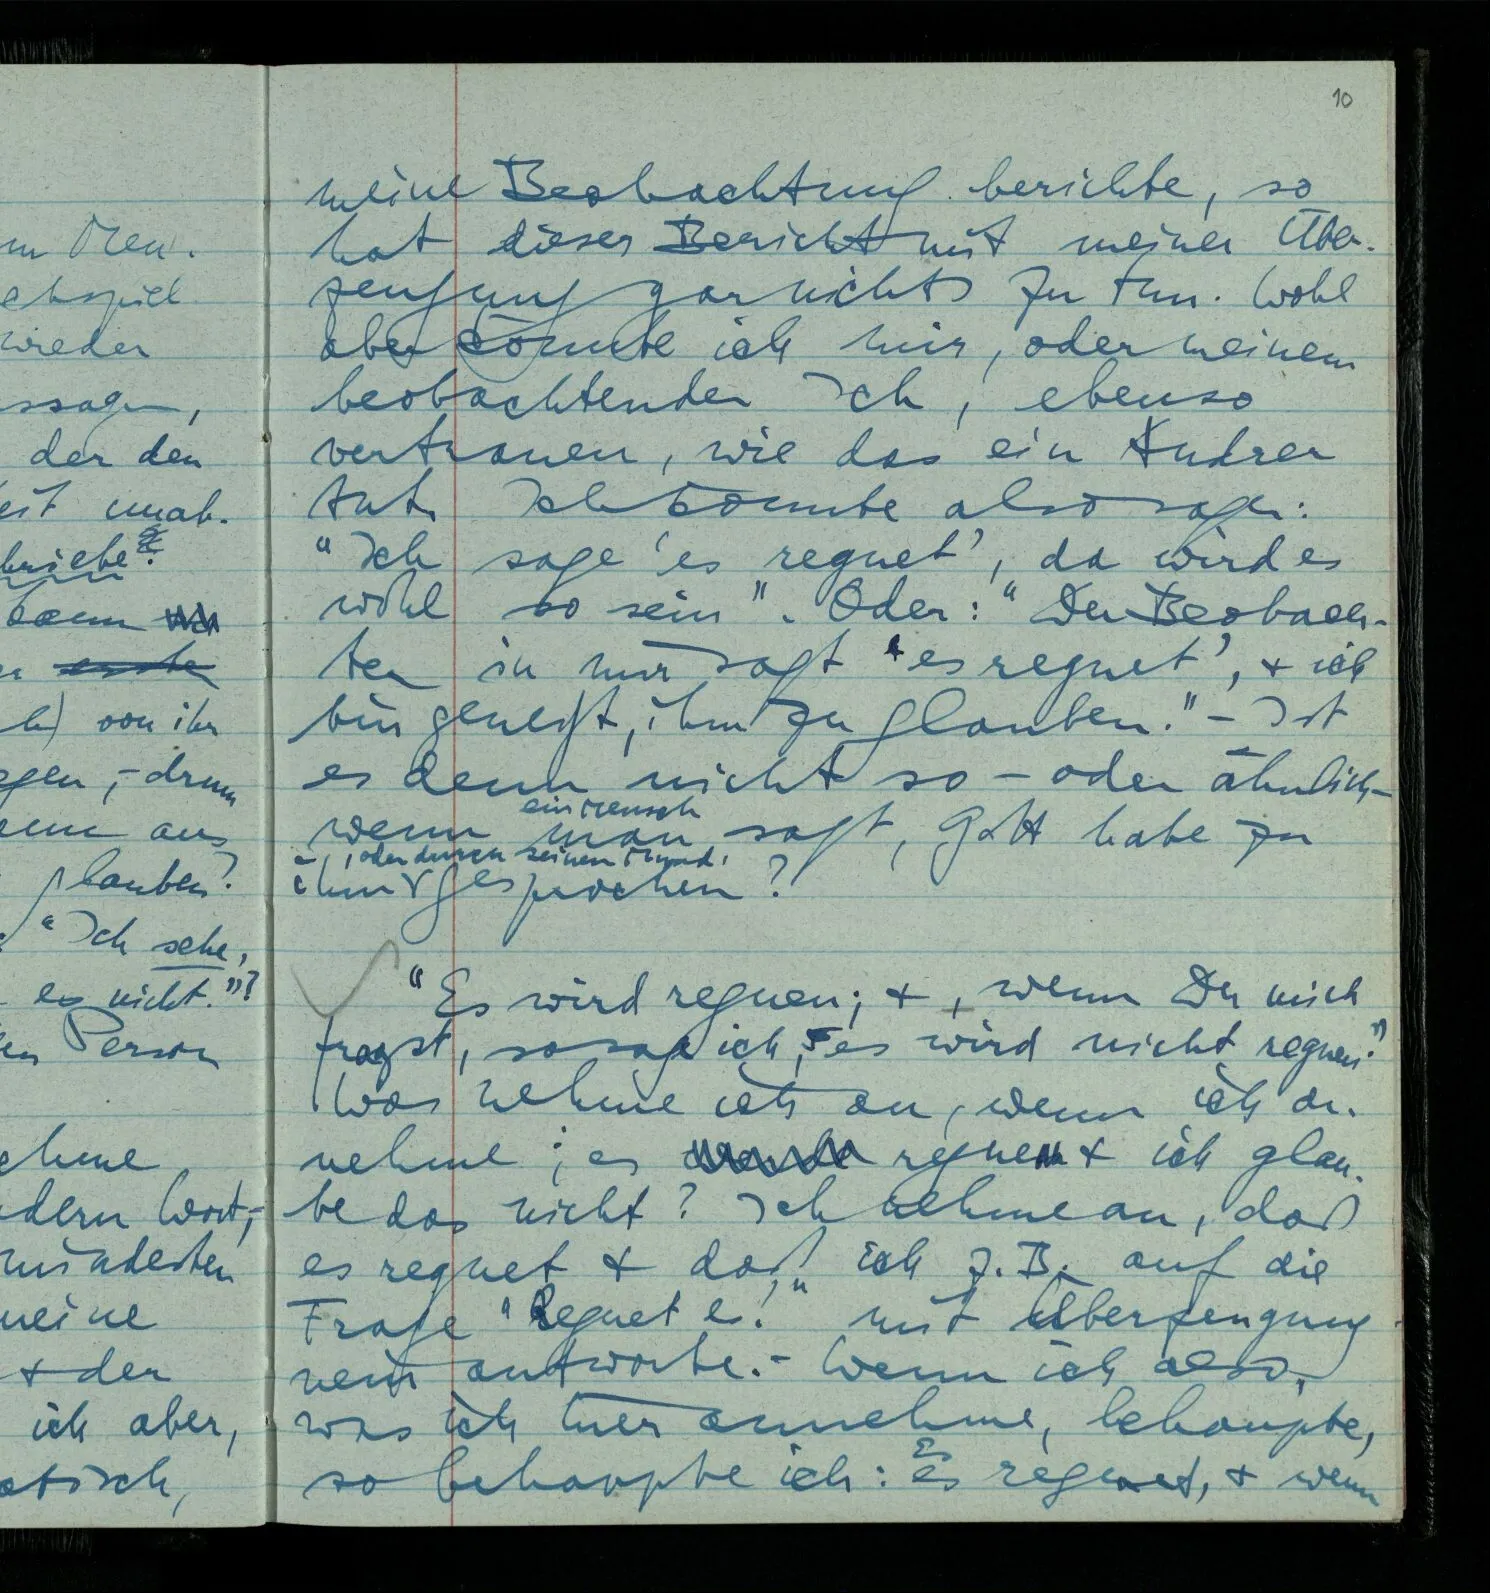 10
meine Beobachtung berichte, so
hat dieser Bericht mit meiner Über-
zeugung garnichts zu tun. Wohl
aber könnte ich mir, oder meinem
beobachtenden Ich, ebenso
vertrauen, wie das ein Andrer
tut. Ich könnte also sagen:
"Ich sage 'es regnet', da wird es
wohl so sein". Oder: "Der Beobach-
ter in mir sagt 'es regnet', + ich
bin geneigt, ihm zu glauben." – Ist
es denn nicht so – oder ähnlich –
ein Mensch
wenn man sagt, Gott habe zu
, oder durch seinen Mund,
ihm gesprochen?
"Es wird regnen; +, wenn Du mich
fragst, so sage ich, es wird nicht regnen."
Was nehme ich an, wenn ich an-
nehme, es regne + ich glau-
be das nicht? Ich nehme an, daß
es regnet + daß ich z.B. auf die
Frage "Regnet es?" mit Überzeugung
nein antworte. – Wenn ich also,
was ich hier annehme, behaupte,
so behaupte ich: Es regnet, + wenn
m Men-
echspiel
wieder
ssagen,
der den
eit unab-
briebe?
kann
er erste
h) von ihr
egen, – drum
aus
glauben?
"Ich sehe,
es nicht."?
en Person
ehme
dern Wort, –
mindesten
meine
+ der
ich aber,
otisch,